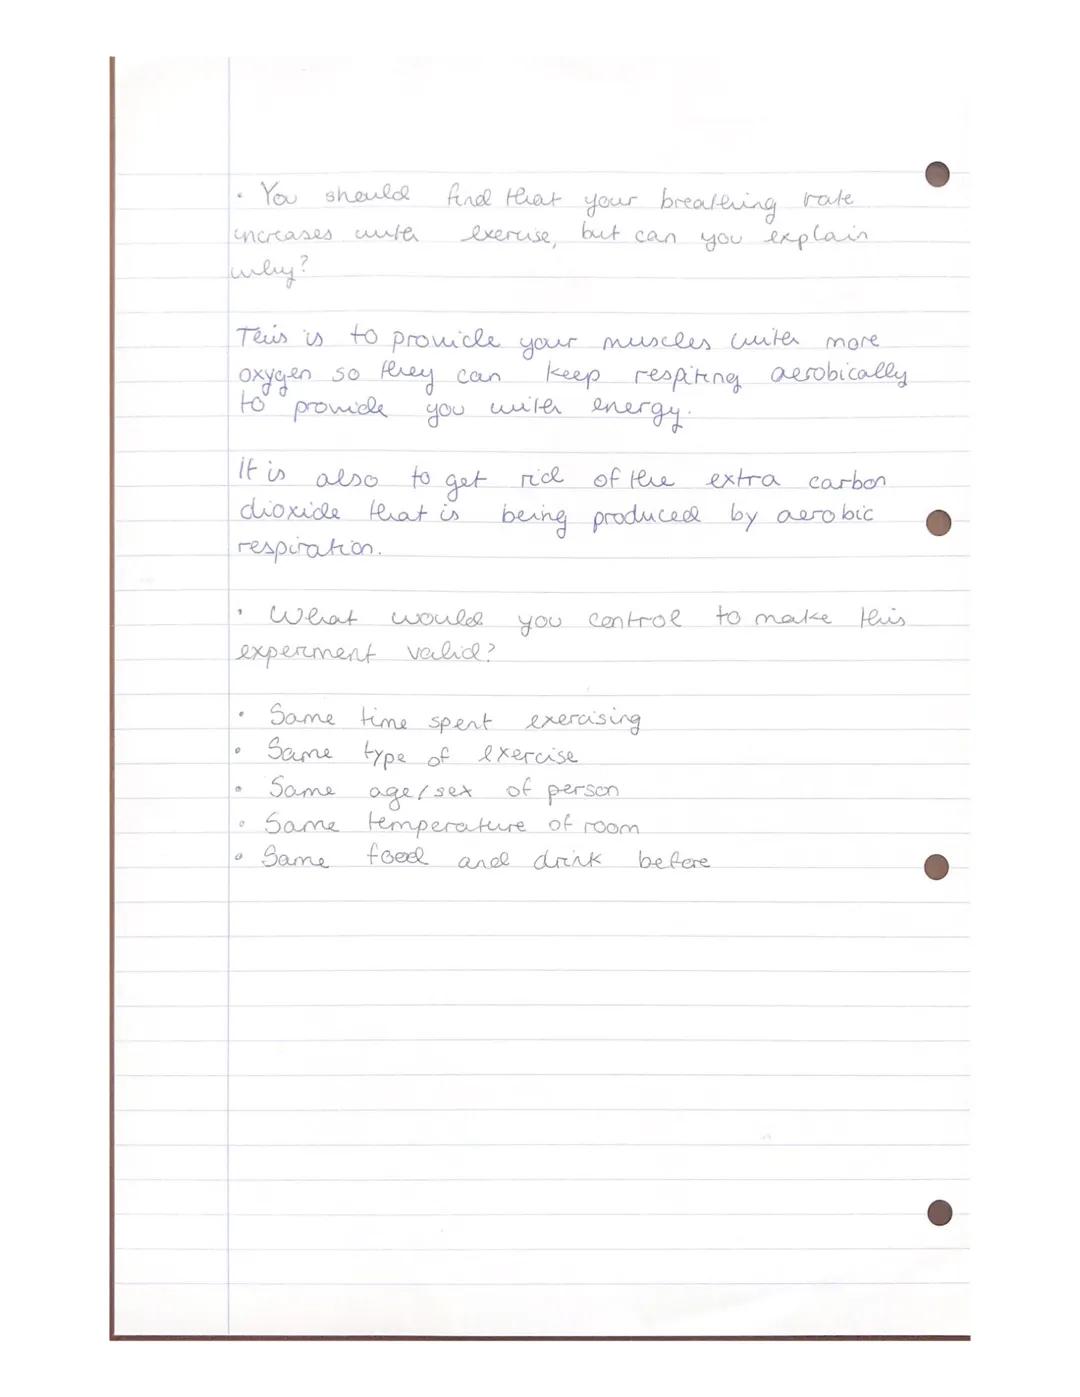 • You should find that your breathing rate
increases with exercise, but can you explain
why?
This is to provide your muscles with more
oxygen so they can keep respiring aerobically
to provide you with energy.
It is also to get rid of the extra carbon
dioxide that is being produced by aerobic
respiration.
• What would you control to make this
experiment valid?
• Same time spent exercising
• Same type of exercise
• Same age/sex of person
• Same temperature of room
• Same food and drink before